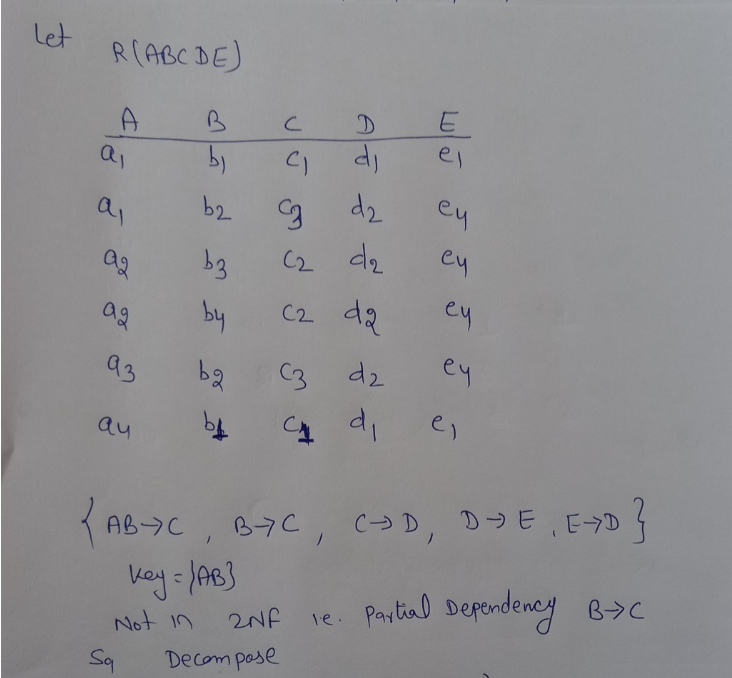 Let
R(ABCDE)
A B C D E
a1 b1 c1 d1 e1
a1 b2 c3 d2 e4
a2 b3 c2 d2 e4
a2 b4 c2 d2 e4
a3 b2 c3 d2 e4
a4 b1 c1 d1 e1
{ AB→C , B→C , C→D, D→E, E→D }
Key = {AB}
Not in 2NF i.e. Partial Dependency B→C
So Decompose